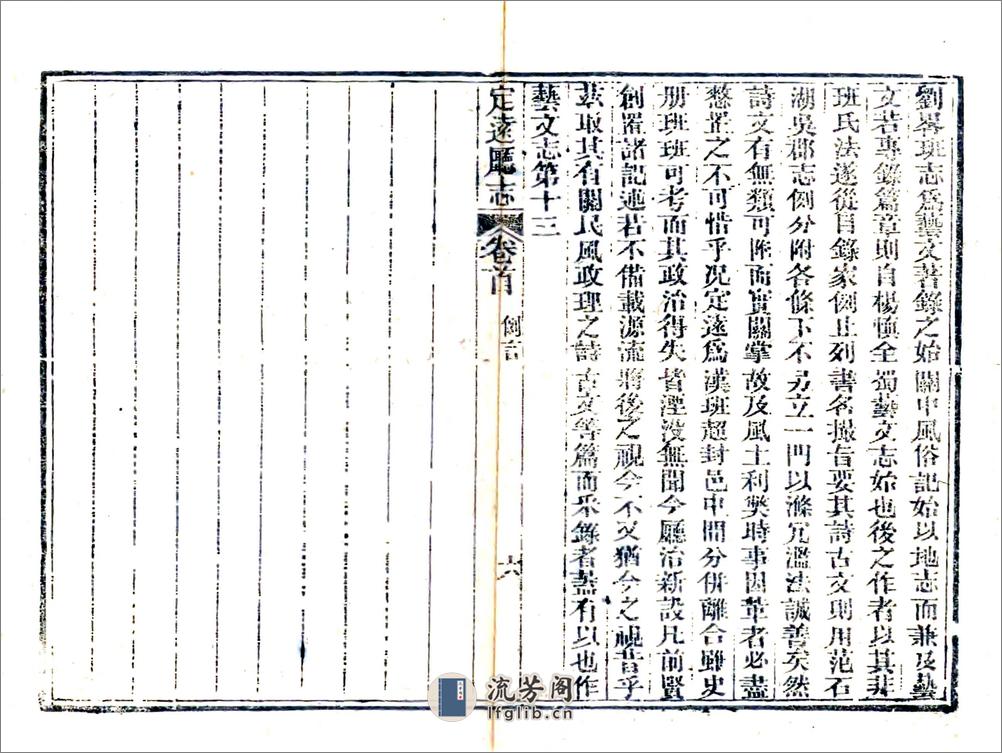 劉畧班志爲藝文著錄之始關中風俗記始以地志而兼及藝
文若專錄篇章則自楊愼全蜀藝文志始也後之作者以其非
班氏法遂從目錄家例止列書名撮旨要其詩古文則用范石
湖吳郡志例分附各條下不另立一門以滌冗濫法誠善矣然
詩文有無類可附而實關掌故及風土利獘時事因革者必盡
憗置之不可惜乎况定遠爲漢班超封邑中間分併離合雖史
册班班可考而其政治得失皆湮没無聞今廳治新設凡前賢
創置諸記述若不備載源流將後之視今不又猶今之視昔乎
兹取其有關民風政理之詩古文等篇而采錄者葢有以也作
藝文志第十三
定遠廳志 卷首 例言 六
流芳阁
lfglib.cn